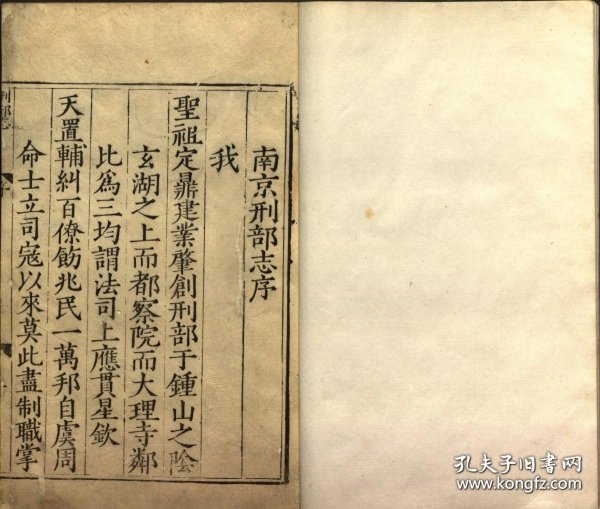 南京刑部志序
我
聖祖定鼎建業肇創刑部于鍾山之陰
玄湖之上而都察院而大理寺鄰
比為三均謂法司上應貫星欽
天置輔糾百僚飭兆民一萬邦自虞周
命士立司寇以來莫此盡制職掌
刑部志
孔夫子旧书网
www.kongfz.com